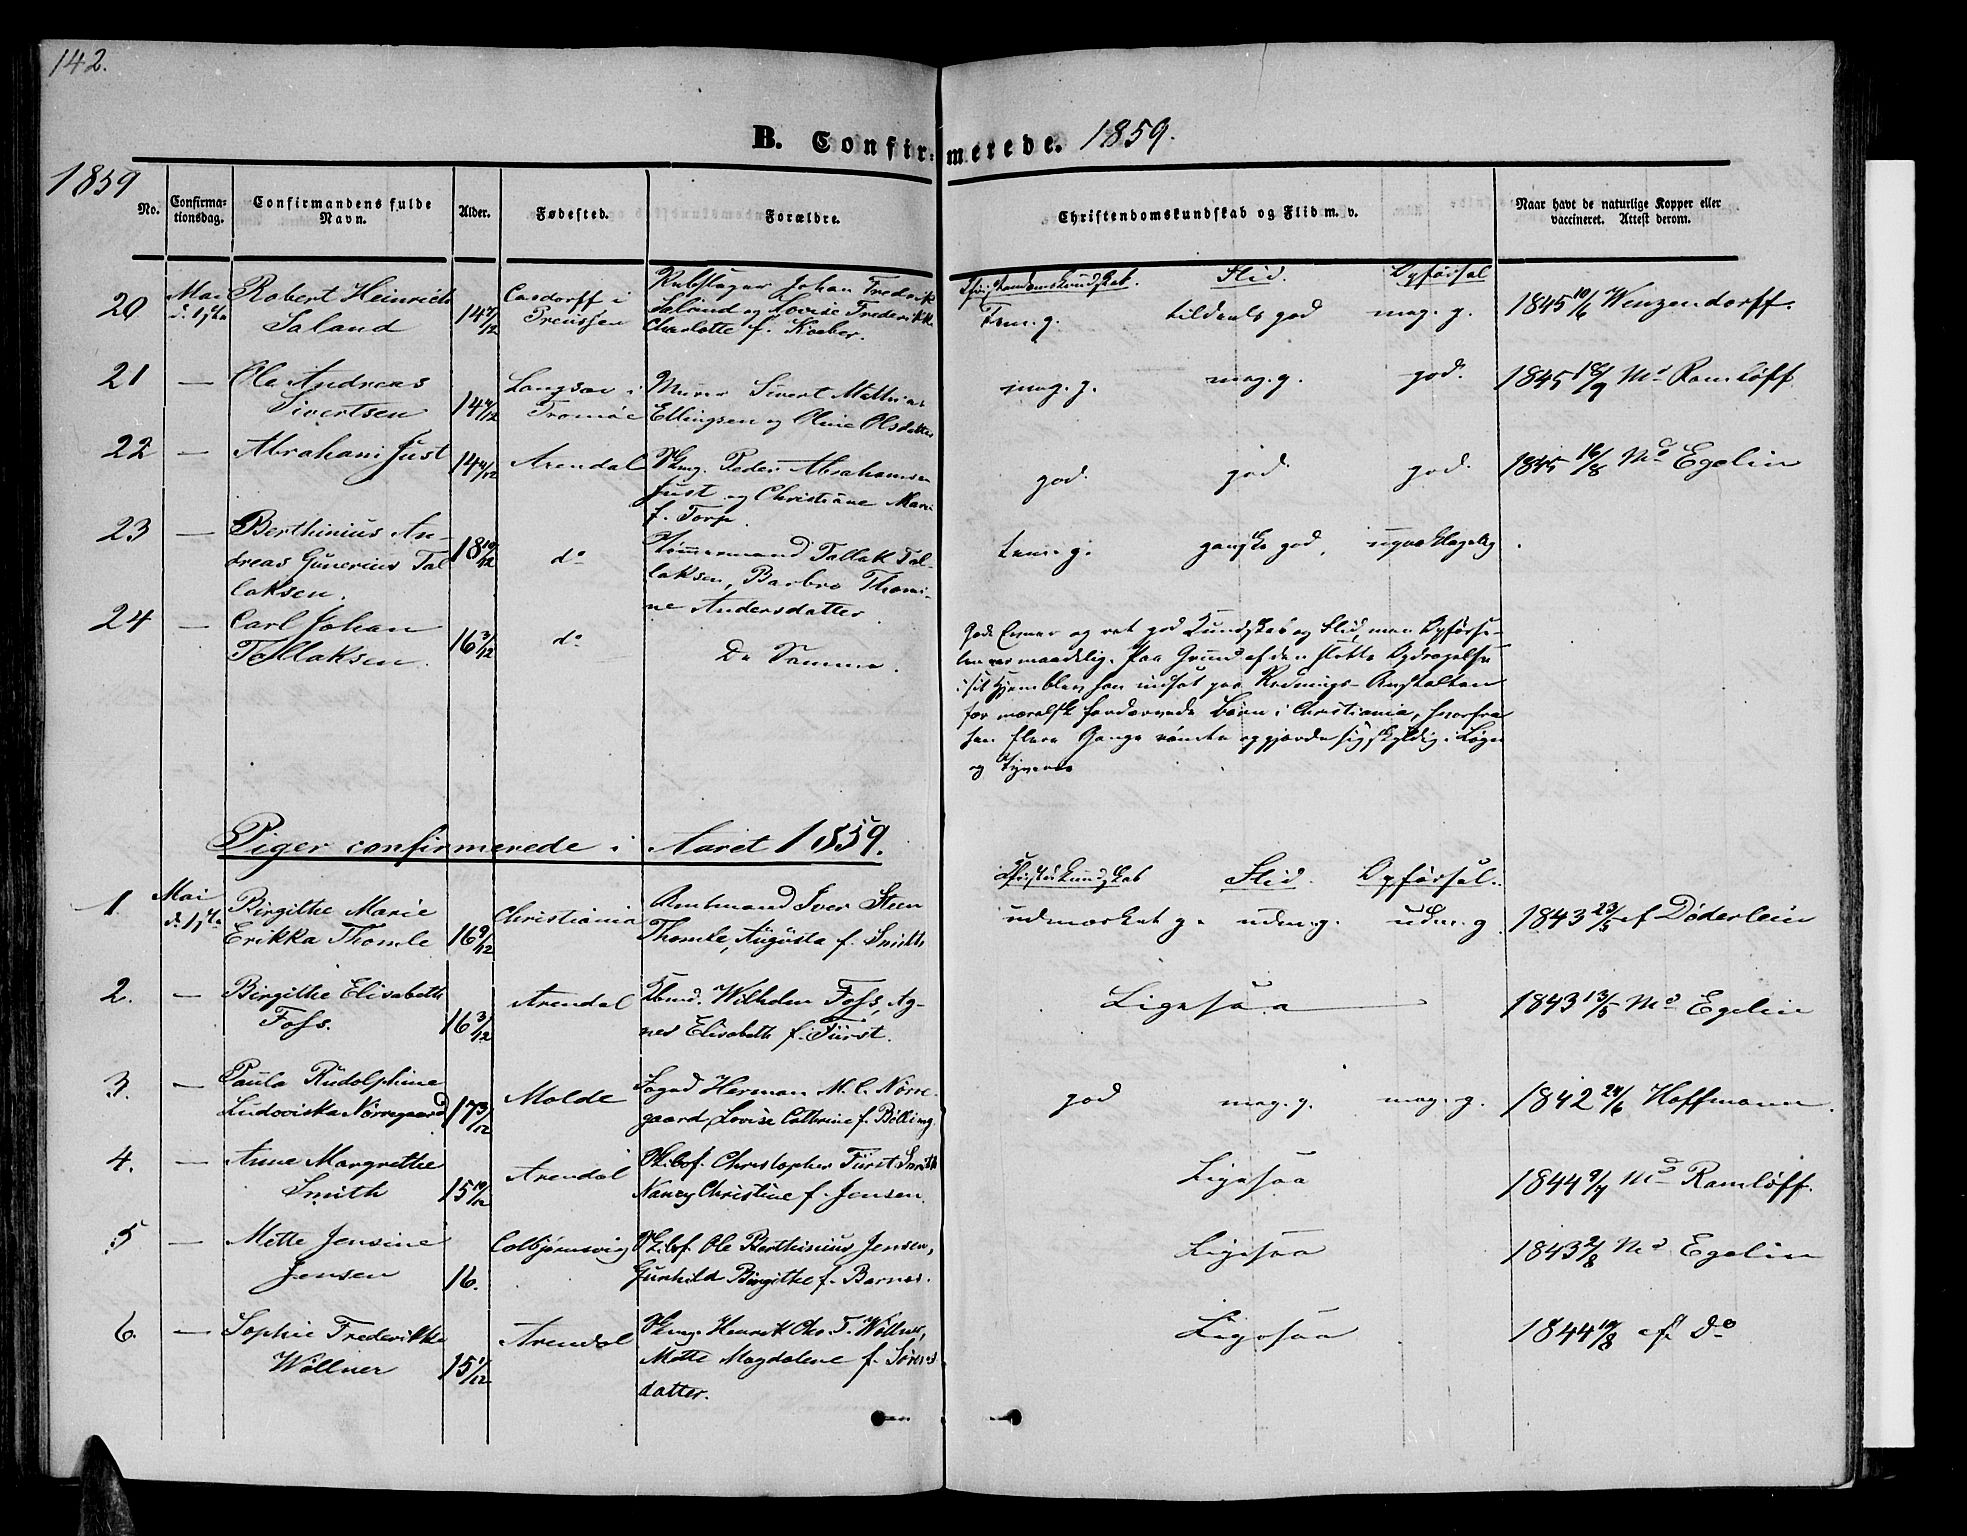 142.
B. Confirmerede. 1859.
1859
No.
Confirma-
tionsdag.
Confirmandens fulde
Navn.
Alder.
Fødested.
Forældre.
Christendomskundskab og Flid m. v.
Naar havt de naturlige Kopper eller
vaccineret. Attest derom.
Christendomskundskab. Flid. Opførsel
20 Mai d. 1ste Robert Heinrich
Saland
14 7/12
Casdorff i
Preussen
Rebslager Johan Frederik
Saland og Lovise Frederikke
Charlotte f. Koeber.
Tem. g. tildeels god meg. g.
1845 10/6 Winzendorff.
21 — Ole Andreas
Sivertsen
Langsæe i
Tromøe
Murer Sivert Mathias
Ellingsen og Oline Olsdatter
meg. g. meg. g. god.
1845 18/9 Md Ramløff
22 — Abraham Just
Arendal
Skmg. Peder Abrahamsen
Just og Christiane Marie
f. Torp.
god. god. god.
1845 16/8 Md Egelin
23 — Berthinius An-
dreas Gunerius Tal
laksen.
18 10/12
do
Tømmermand Tallak Tal-
laksen, Barbro Thomi-
ne Andersdatter
tem. g. ganske god, upaaklagelig.
24 — Carl Johan
Tallaksen.
16 3/12
do
De Samme.
Gode Evner og ret god Kundskab og Flid, men Opførse-
len var maadelig. Paa Grund af den slette Opdragelse
i sit Hjem blev han indsat paa Rednings-Anstalten
for moralsk fordærvede Børn i Christiania, hvorfra
han flere Gange rømte og gjorde sig skyldig i Løgn
og Tyverie
Piger confirmerede i Aaret 1859.
Christ. Kundskab Flid. Opførsel.
1. Mai d. 1ste Birgithe Marie
Erikka Thomle
16 9/12
Christiania
Amtmand Iver Steen
Thomle, Augusta f. Smith
udmærket g. udm. g. udm. g.
1843 23/5 af Døderlein
2. — Birgithe Elisabeth
Foss.
16 3/12
Arendal
Kbmd. Wilhelm Foss, Ag-
nes Elisabeth f. Fürst.
Ligesaa
1843 13/5 Md Egelin
3. — Paula Rudolphine
Ludoviska Nørregaard
17 3/12
Molde
Foged Herman M. C. Nørre-
gaard, Lovise Cathrine f. Bølling
god meg. g. meg. g.
1842 24/6 Hoffmann.
4. — Anne Margrethe
Smith
15 10/12
Arendal
Skibsf. Christopher Fürst Smith
Nancy Christine f. Jensen.
Ligesaa
1844 9/7 Md Ramløff.
5 — Mette Jensine
Jensen
16.
Colbjørnsvig
Skibsf. Ole Berthinius Jensen,
Gunhild Birgithe f. Barnes.
Ligesaa
1843 2/8 Md Egelin
6. — Sophie Frederikke
Wøllner
15 1/12
Arendal
Skmg. Henrik Chr. F. Wøllner,
Mette Magdalene f. Sørens
datter.
Ligesaa
1844 19/8 af do